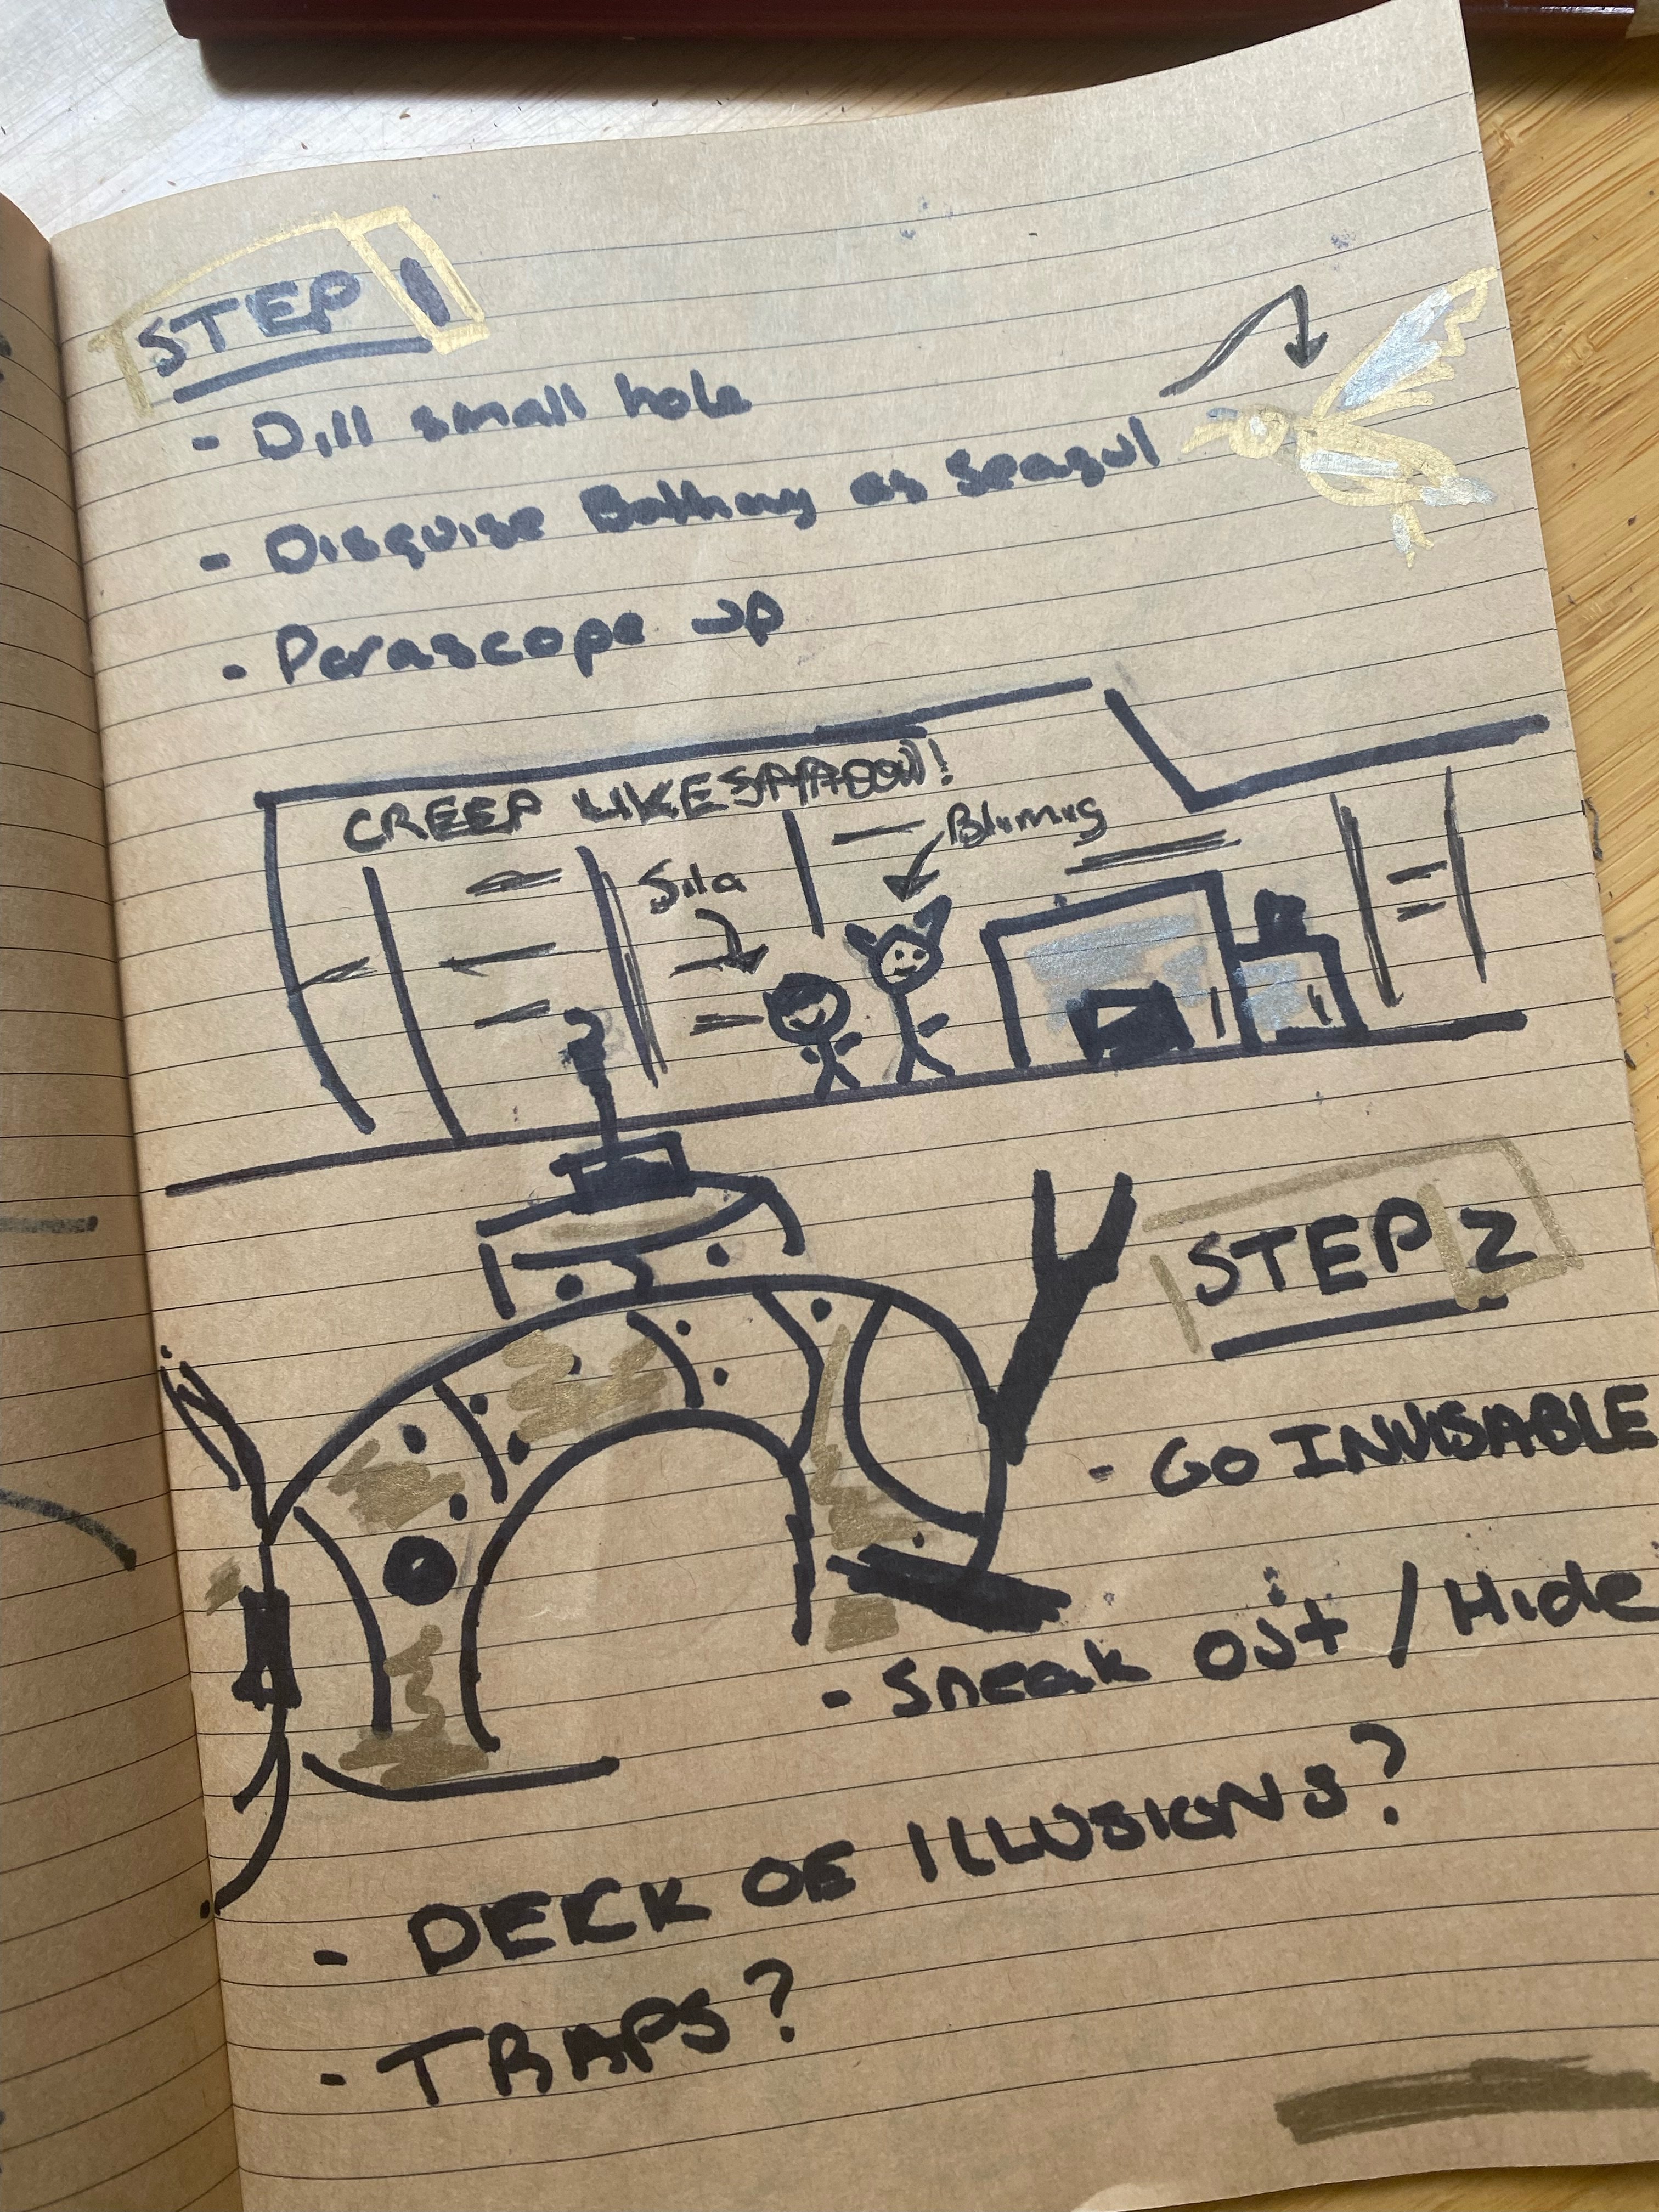 STEP 1
- Dill small hole
- Disguise Bathing as Seagul
- Parascope up
CREEP LIKE SHADOW!
Blumug
Sila
STEP 2
- GO INVISABLE
- Sneak out / Hide
- DECK OF ILLUSIONS?
- TRAPS?